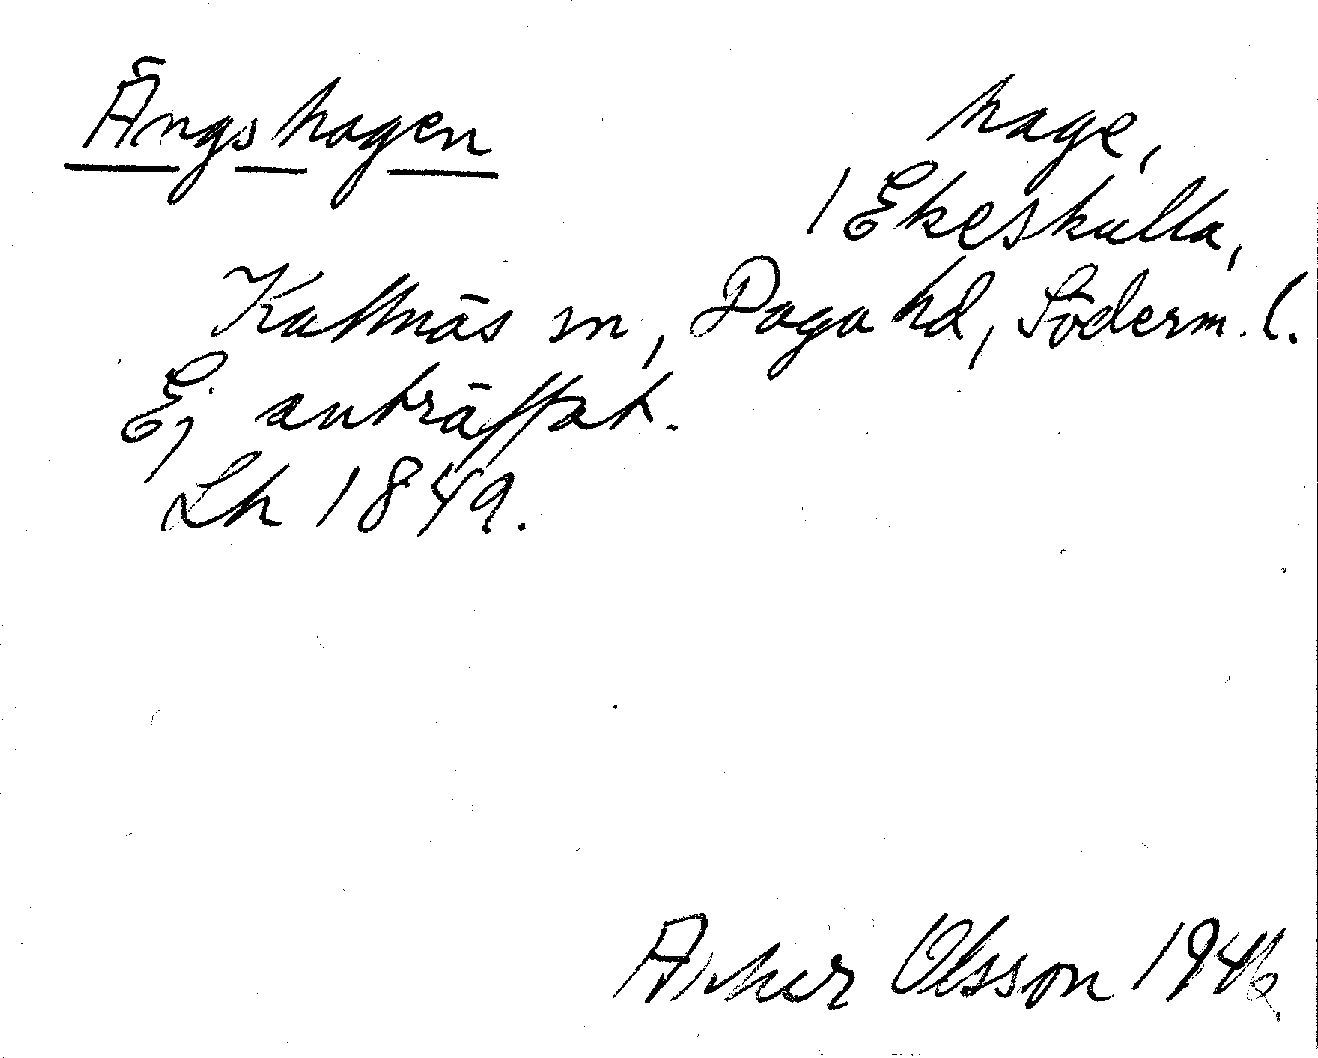 Ängshagen
hage,
/ Ekeskulla,
Kattnäs sn, Daga hd, Söderm. l.
Ej anträffat.
Lh 1849.
Arthur Olsson 1946.